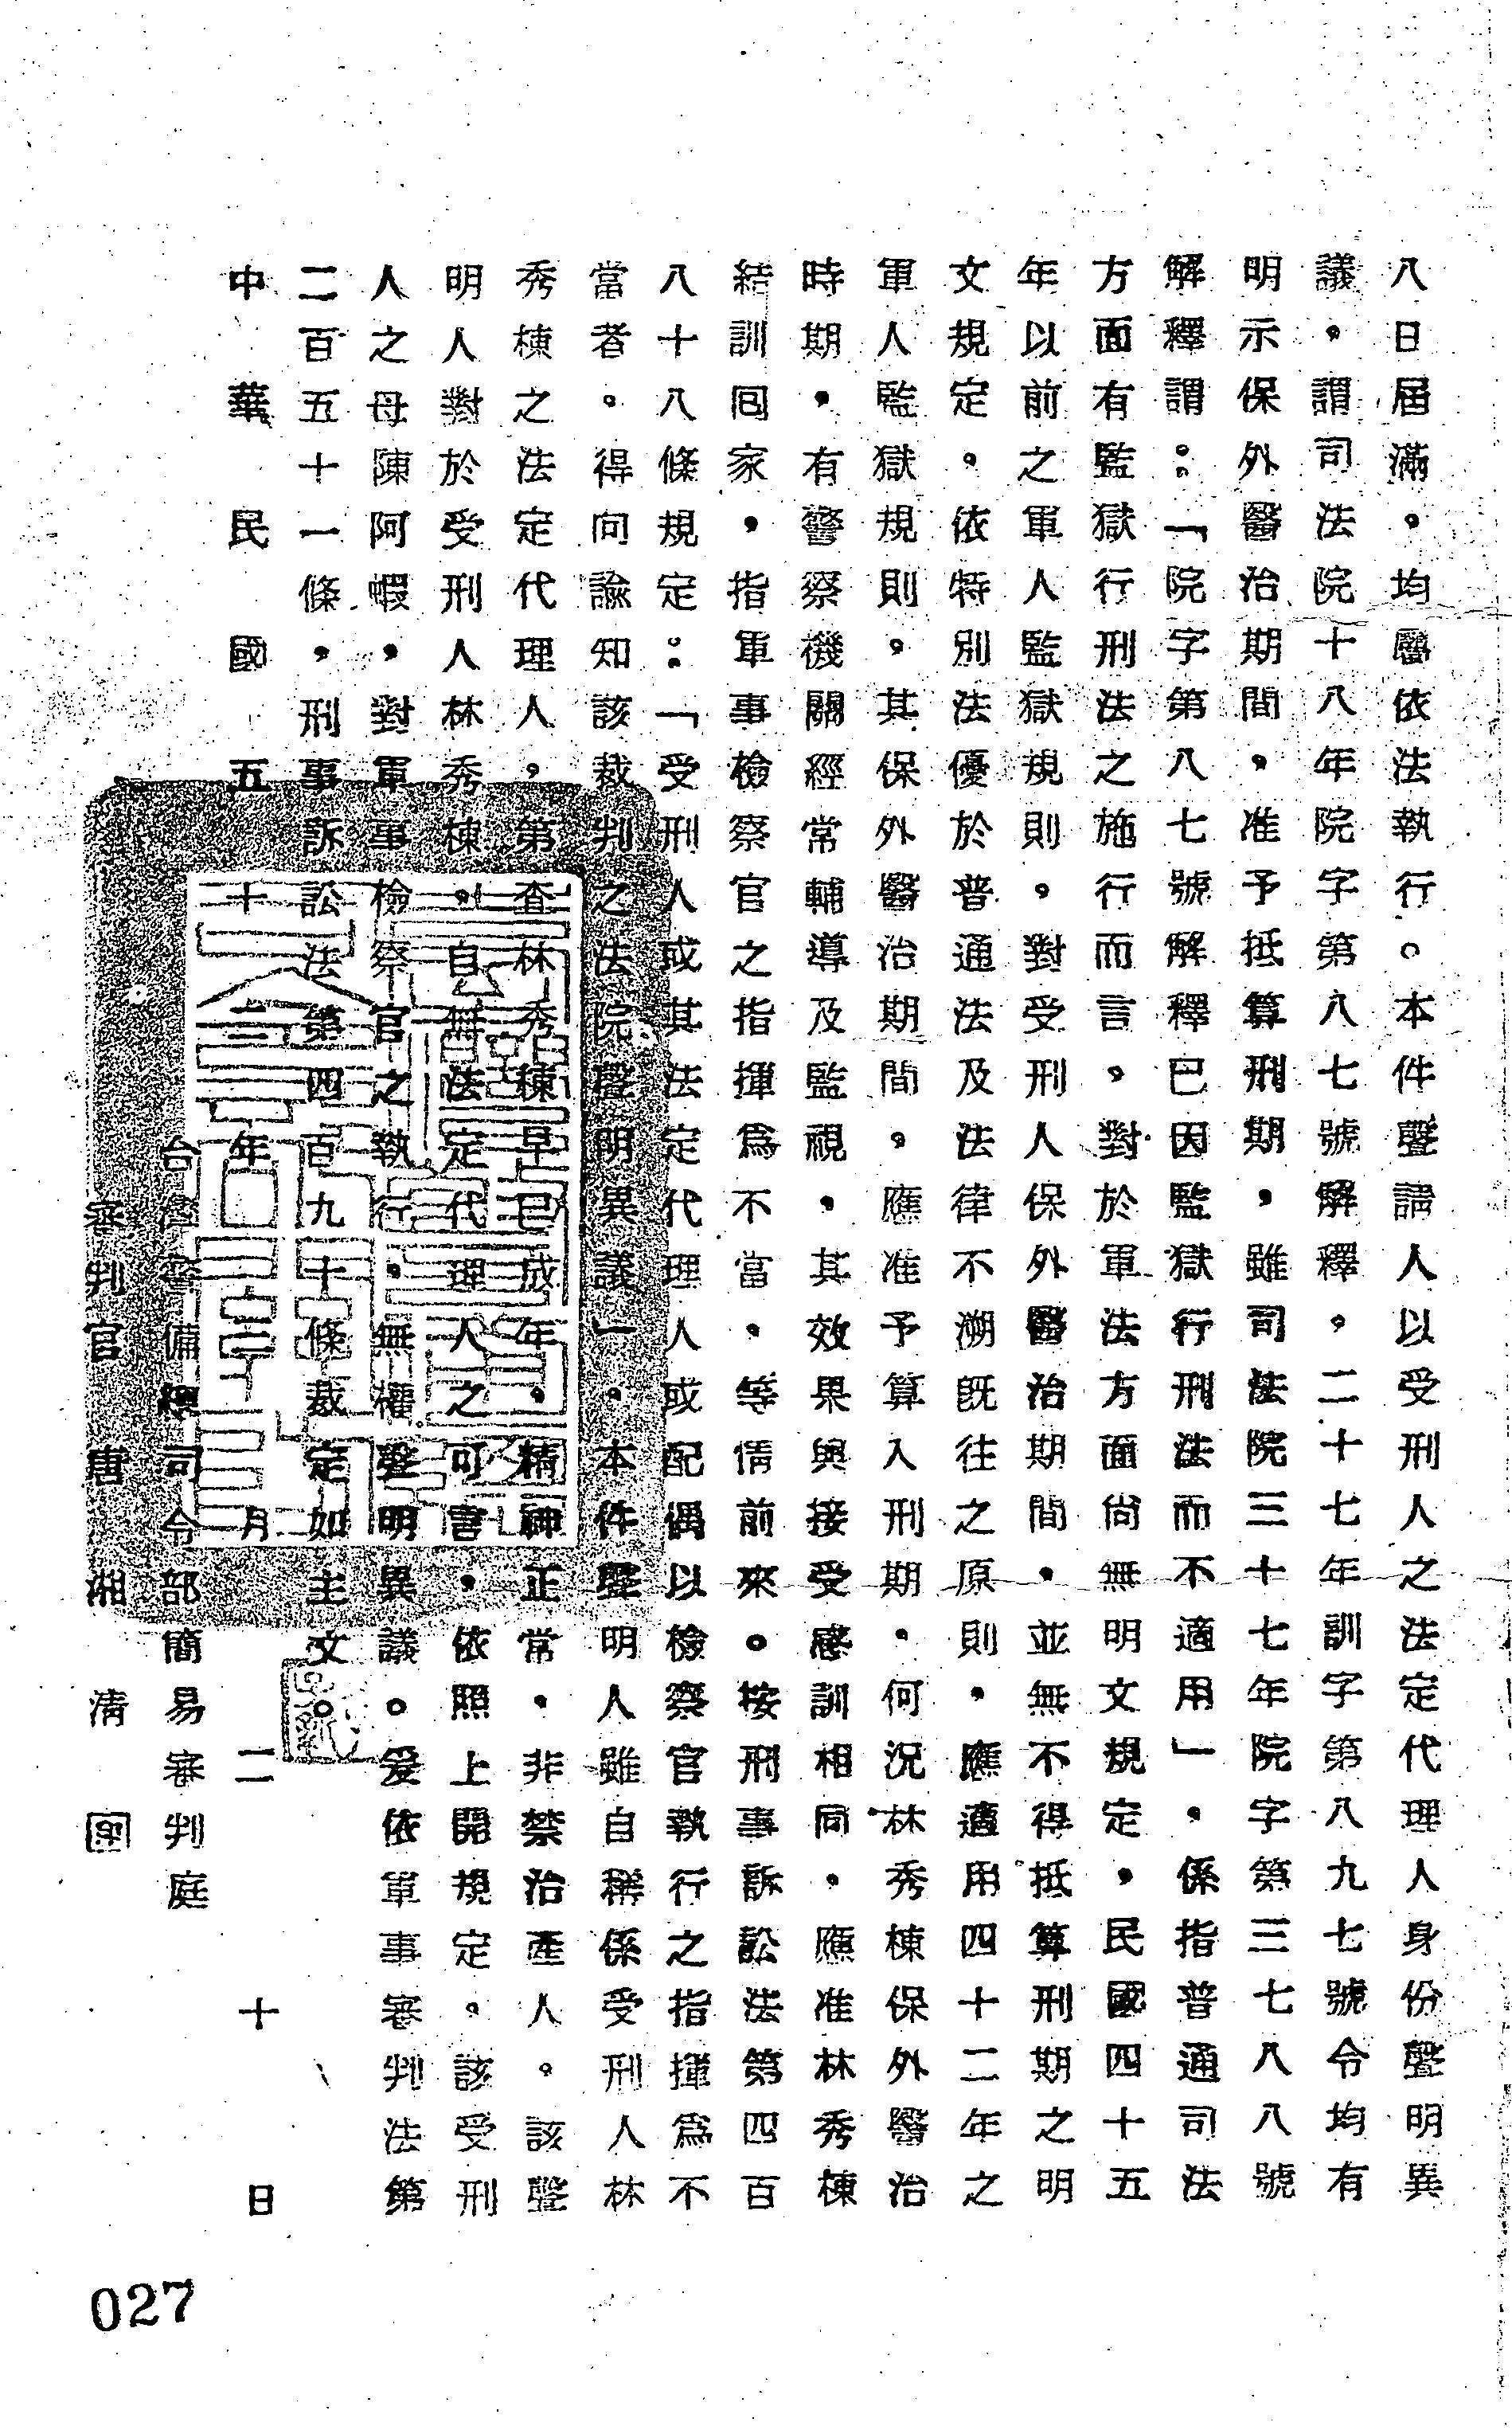 八日屆滿。均應依法執行。本件聲請人以受刑人之法定代理人身份聲明異
議。謂司法院十八年院字第八七號解釋。二十七年訓字第八九七號令均有
明示保外醫治期間,准予抵算刑期,雖司法院三十七年院字第三七八八號
解釋謂:「院字第八七號解釋已因監獄行刑法而不適用」,係指普通司法
方面有監獄行刑法之施行而言,對於軍法方面尚無明文規定,民國四十五
年以前之軍人監獄規則。對受刑人保外醫治期間。並無不得抵算刑期之明
文規定。依特別法優於普通法及法律不溯既往之原則,應適用四十二年之
軍人監獄規則。其保外醫治期間。應准予算入刑期。何況林秀棟保外醫治
時期,有警察機關經常輔導及監視,其效果與接受感訓相同。應准林秀棟
結訓囘家,指軍事檢察官之指揮為不當。等情前來。按刑事訴訟法第四百
八十八條規定:「受刑人或其法定代理人或配偶以檢察官執行之指揮為不
當者。得向諭知該裁判之法院聲明異議」。本件聲明人雖自稱係受刑人林
秀棟之法定代理人,第查林秀棟早已成年,精神正常,非禁治產人。該聲
明人對於受刑人林秀棟。自無法定代理人之可言,依照上開規定。該受刑
人之母陳阿蝦,對軍事檢察官之執行,無權聲明異議。爰依軍事審判法第
二百五十一條,刑事訴訟法第四百九十條裁定如主文。
中華民國五十二年 月二十日
台灣警備總司令部簡易審判庭
審判官 唐湘清
027